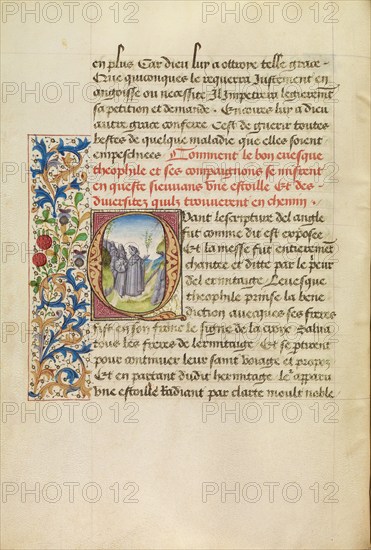 en plus Car dieu luy a ottroye telle grace.
Que quiconques le requerra Iustement en
angoisse ou necessite Il Impetrera legierement
sa petition et demande. Encores luy a dieu
autre grace conferee Cest de guerir toutes
bestes de quelque maladie que elles soient
empeschiees Comment le bon euesque
theophile et ses compaignons se misrent
en queste sieuuans vne estoille Et des
diuersitez quilz trouuerent en chemin.
Quant lescripture del angle
fut comme dit est exposee
Et la messe fut entierement
chantee et ditte par le prieur
del ermitaige Leuesque
theophile prinse la bene
diction auecques ses freres
fist en son frainc le signe de la croix Salua
tous les freres de lermitaige Et se partirent
pour continuer leur saint voiage et propoz
Et en partant dudit hermitage leur apparu
vne estoille Radiant par clarte moult noble
PHOTO 12